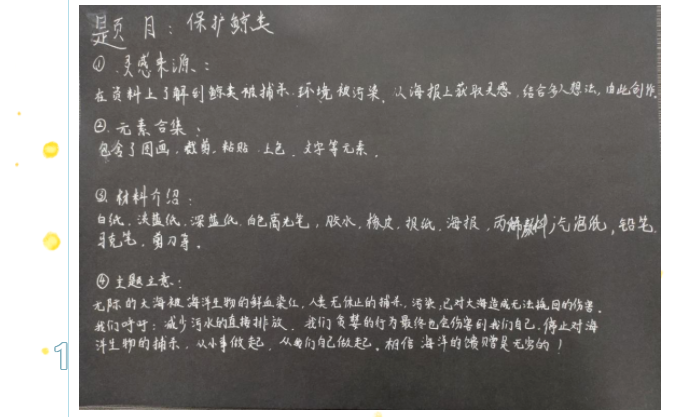 题目：保护鲸类
①灵感来源：
在资料上了解到鲸类被捕杀.环境被污染，从海报上获取灵感，结合多人想法，由此创作.
②.元素合集：
包含了图画.裁剪.粘贴.上色.文字等元素.
③.材料介绍：
白纸.淡蓝纸.深蓝纸.白色高光笔，胶水，橡皮.报纸.海报，丙烯颜料，气泡纸，铅笔，
马克笔，剪刀等。
④主题立意：
无际的大海被海洋生物的鲜血染红，人类无休止的捕杀，污染，已对大海造成无法挽回的伤害.
我们呼吁：减少污水的直接排放，我们贪婪的行为最终也会伤害到我们自己.停止对海
洋生物的捕杀，从小事做起，从我们自己做起。相信海洋的馈赠是无穷的！
1